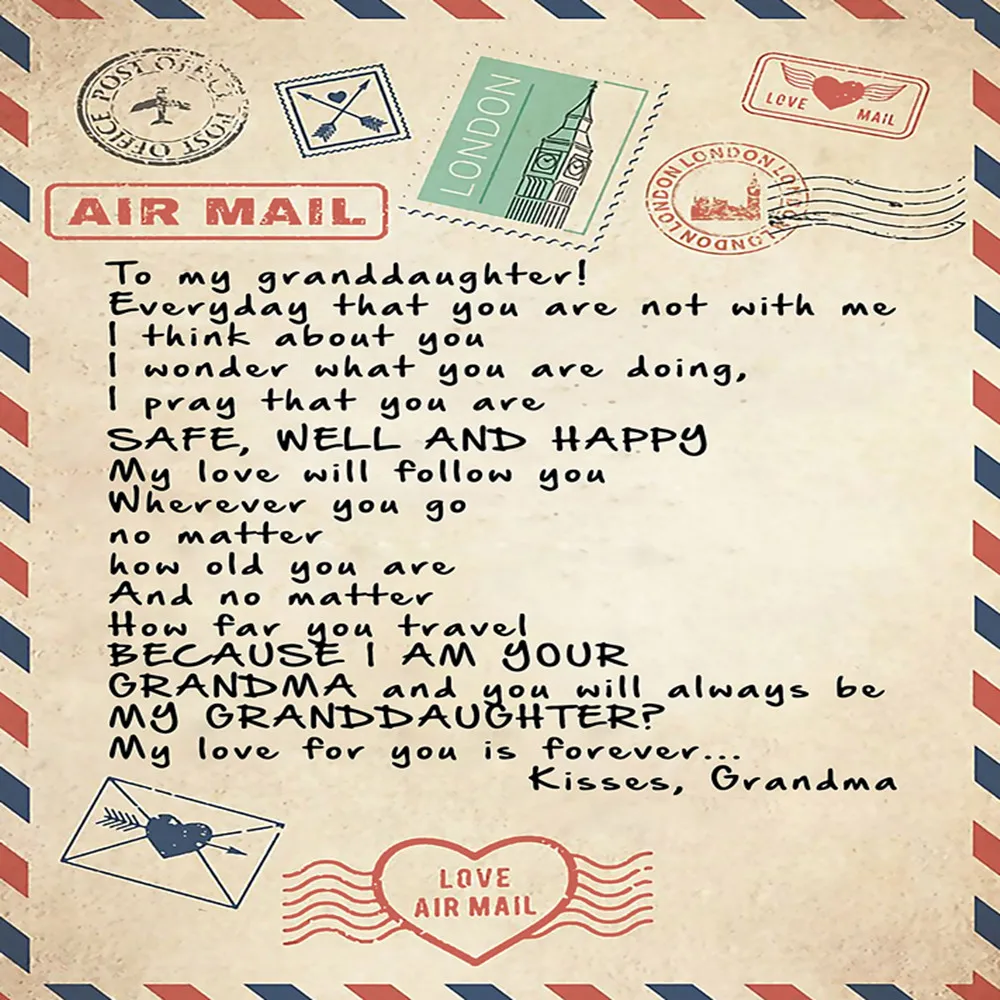 POST OFFICE POST OFFICE
LONDON
LOVE MAIL
LONDON LONDON LONDON LONDON
AIR MAIL
To my granddaughter!
Everyday that you are not with me
I think about you
I wonder what you are doing,
I pray that you are
SAFE, WELL AND HAPPY
My love will follow you
Wherever you go
no matter
how old you are
And no matter
How far you travel
BECAUSE I AM YOUR
GRANDMA and you will always be
MY GRANDDAUGHTER?
My love for you is forever...
Kisses, Grandma
LOVE
AIR MAIL